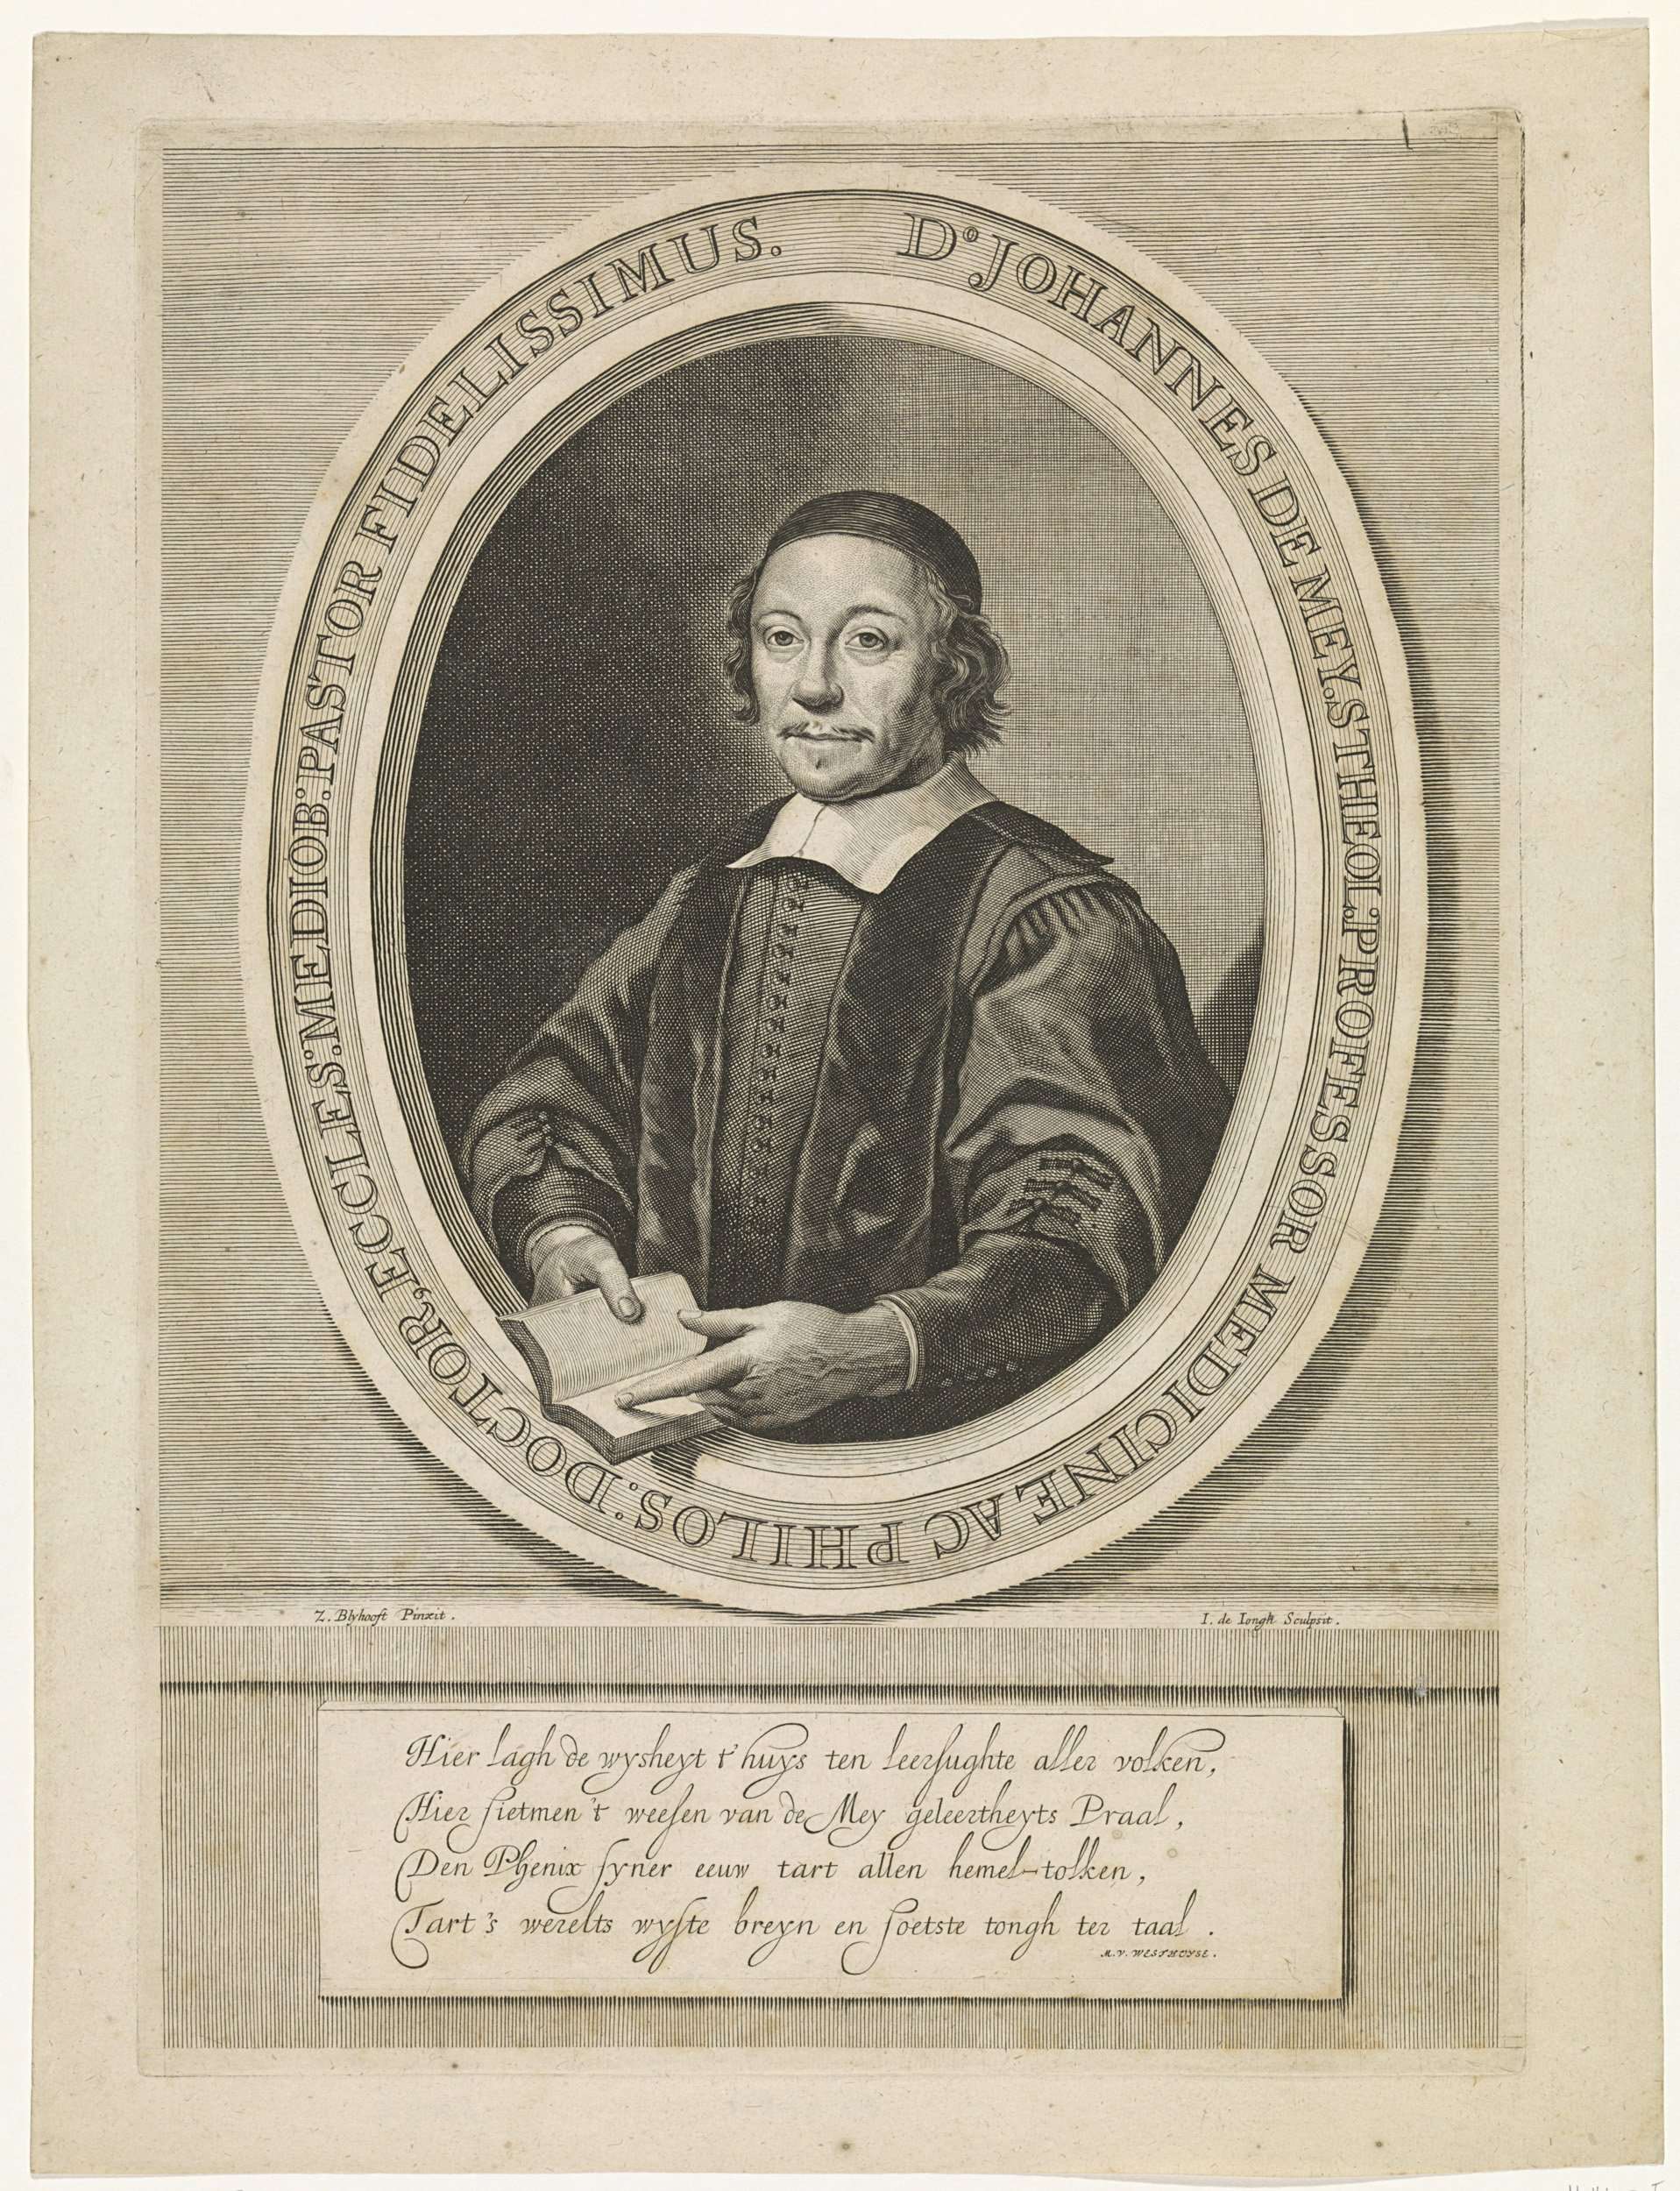 Dº. JOHANNES DE MEY. S THEOL: PROFESSOR MEDICINE AC PHILOS: DOCTOR, ECCLES: MEDIOB: PASTOR FIDELISSIMUS.
Z. Blyhooft Pinxit.
I. de Iongh Sculpsit.
Hier lagh de wysheyt t'huys ten leersughte aller volken,
Hier sietmen 't weesen van de Mey geleertheyts Praal,
Den Phenix syner eeuw tart allen hemel-tolken,
Tart 's werelts wyste breyn en soetste tongh ter taal.
M.V. WESTHUYSE.